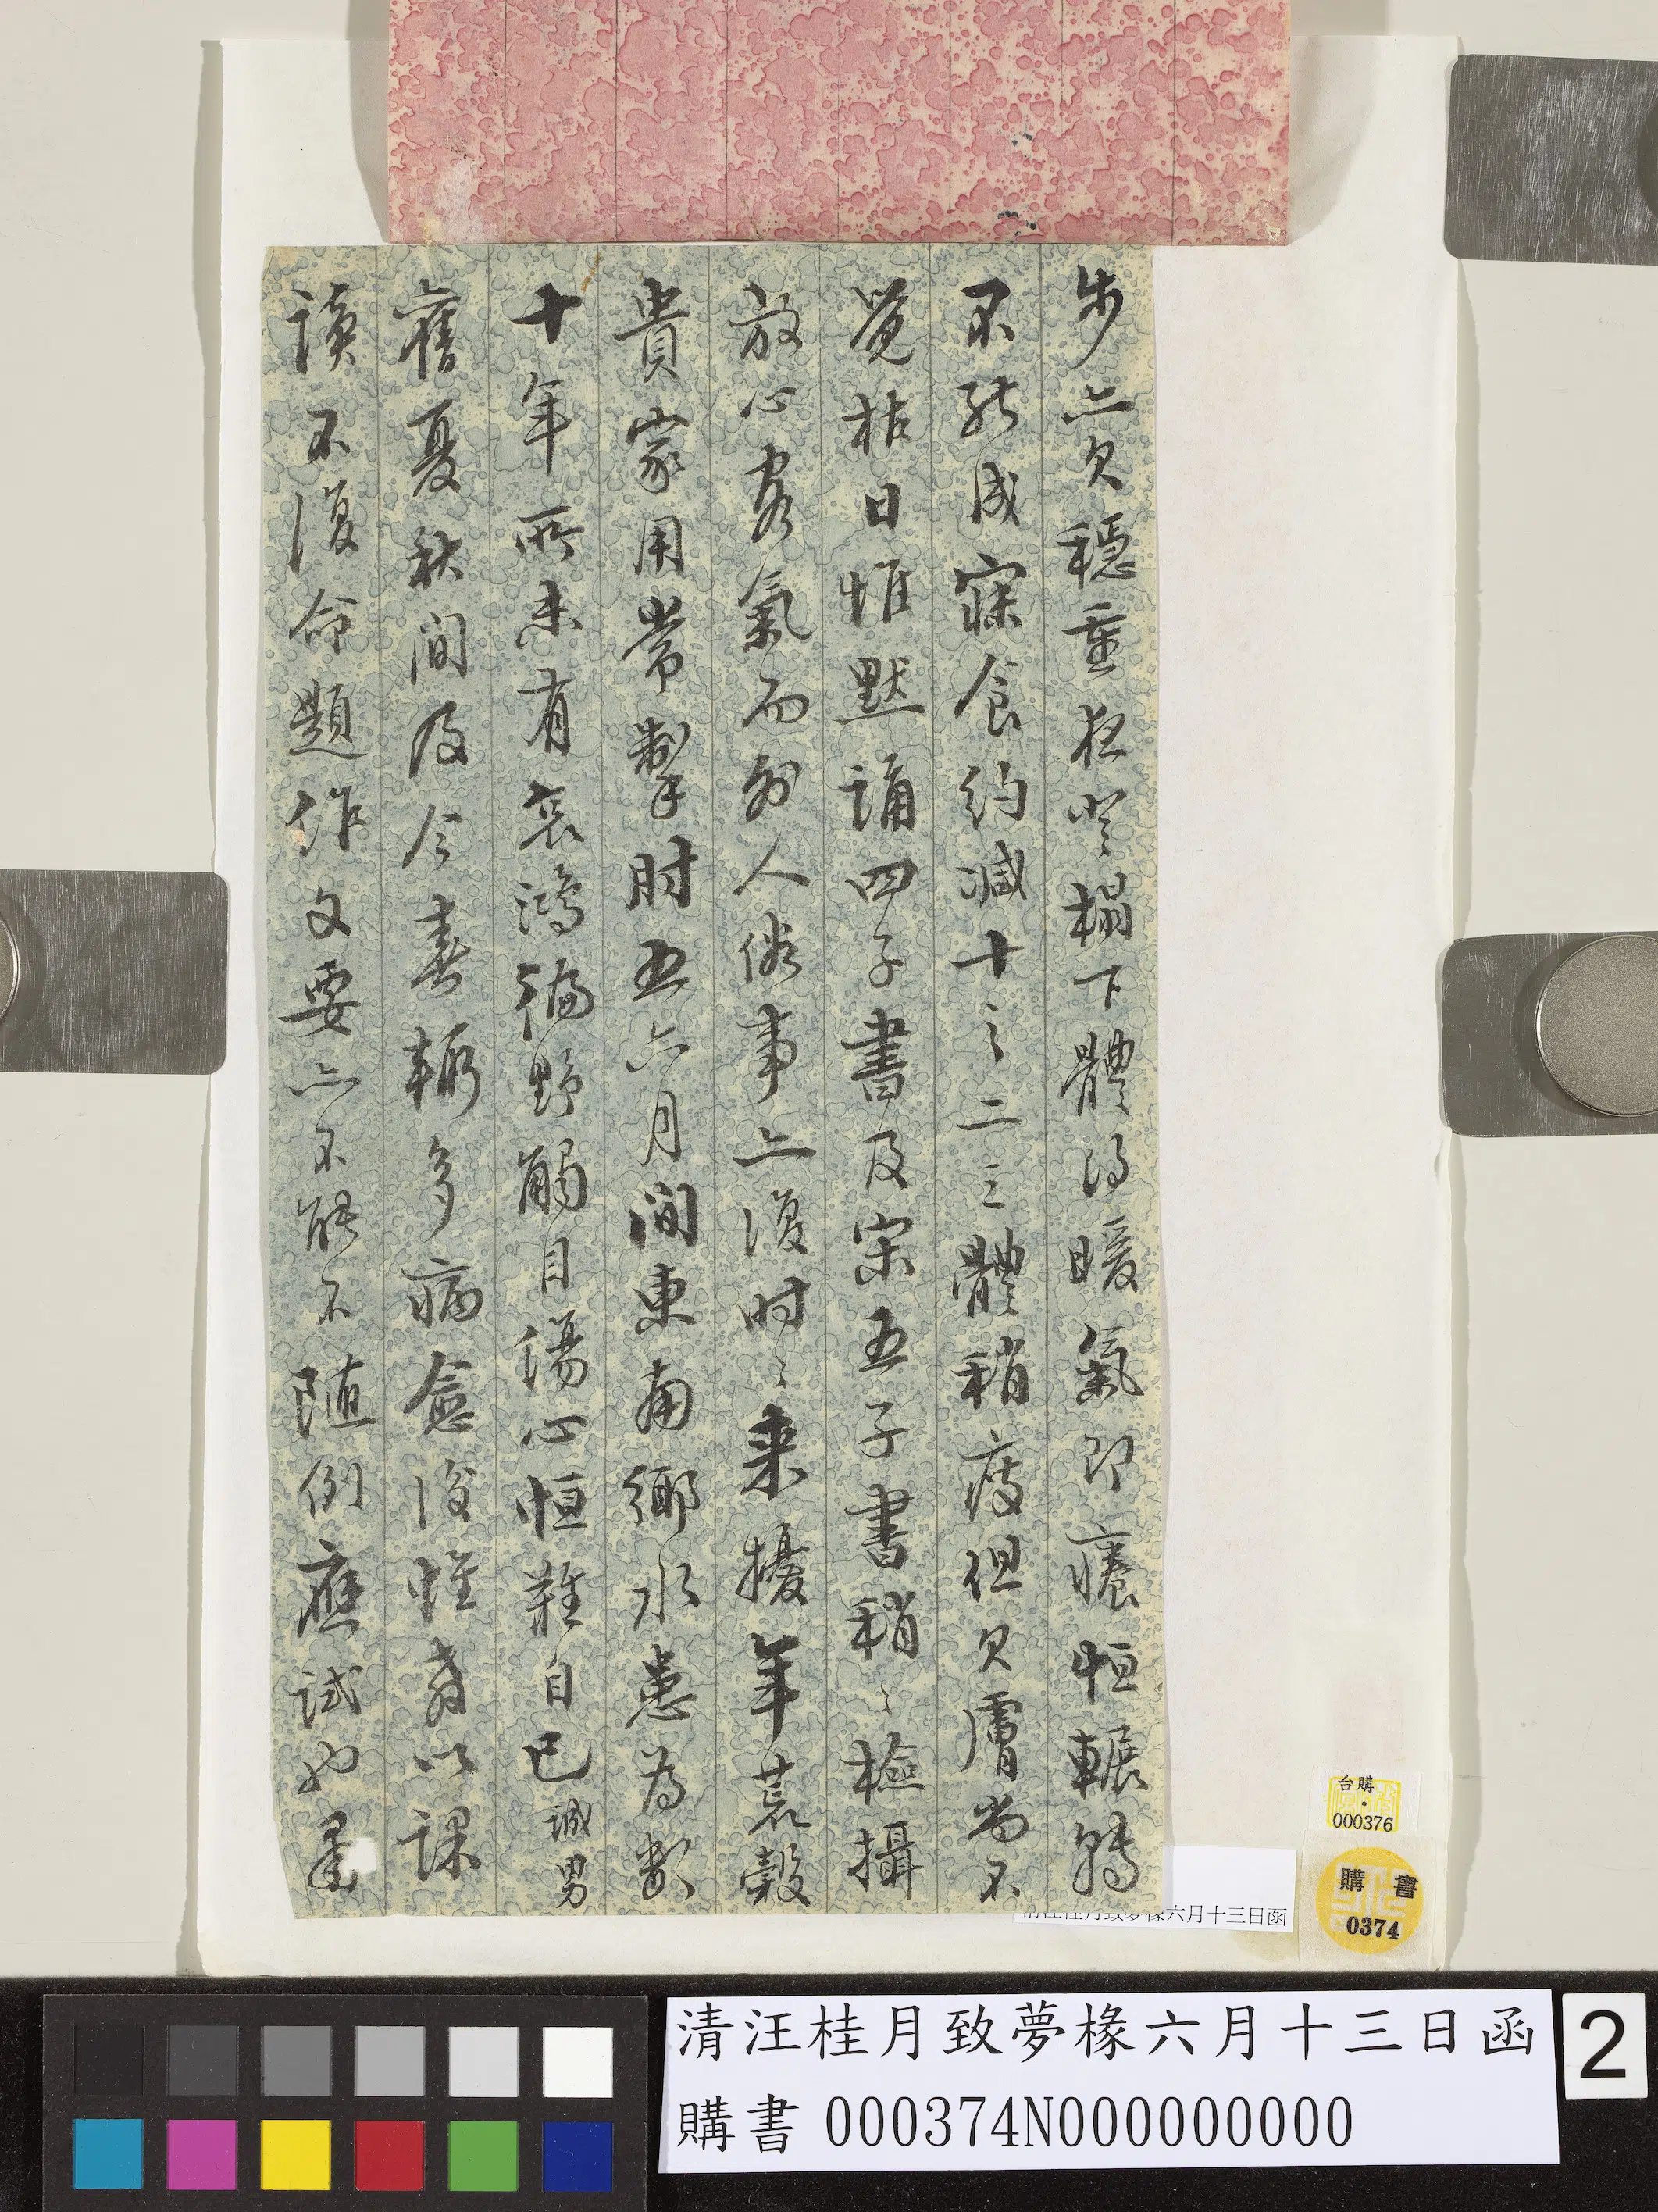 步亦欠穩重夜登榻下體得暖氣即癢恒輾轉
不能成寐食約減十之二三體稍疲但欠膚尚不
覺枯日惟默誦四子書及宋五子書稍〻檢攝
放心客氣而外人俗事亦復時〻來擾年荒穀
貴家用常掣肘五六月間東南鄉水患為數
十年所未有哀鴻徧野觸目傷心恒難自已誠男
舊夏秋間及今春輒多病愈後惟督以課
讀不復命題作文要亦不能不隨例應試也
清汪桂月致夢椽六月十三日函
台購
000376
購書
0374
清汪桂月致夢椽六月十三日函
購書 000374N000000000
2